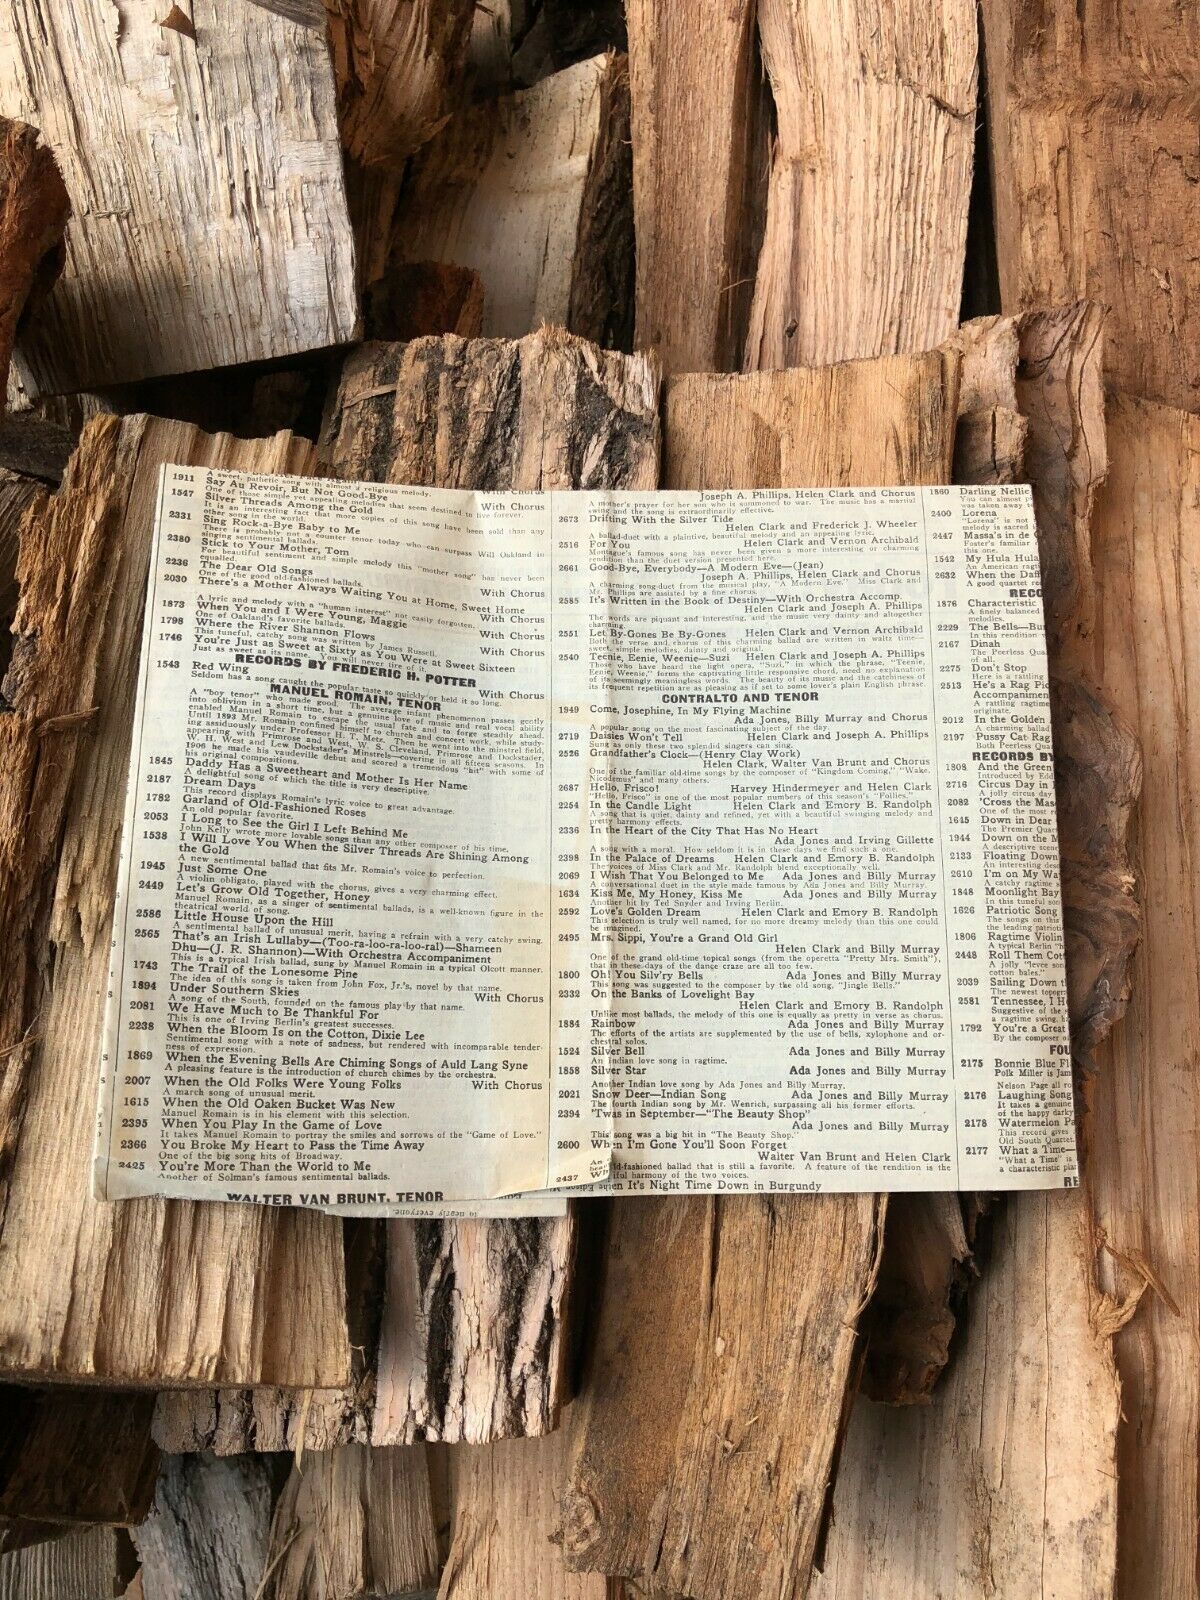 A sweet, pathetic song with almost a religious melody.
1911 Say Au Revoir, But Not Good-Bye With Chorus
One of those simple yet appealing melodies that seem destined to live forever.
1547 Silver Threads Among the Gold With Chorus
It is an interesting fact that more copies of this song have been sold than any
other song in the world.
2331 Sing Rock-a-Bye Baby to Me
There is probably not a counter tenor today who can surpass Will Oakland in
singing sentimental ballads.
2380 Stick to Your Mother, Tom
For beautiful sentiment and simple melody this "mother song" has never been
equalled.
2236 The Dear Old Songs With Chorus
One of the good old-fashioned ballads.
2030 There's a Mother Always Waiting You at Home, Sweet Home
With Chorus
A lyric and melody with a "human interest" not easily forgotten.
1873 When You and I Were Young, Maggie With Chorus
One of Oakland's favorite ballads.
1798 Where the River Shannon Flows With Chorus
This tuneful, catchy song was written by James Russell.
1746 You're Just as Sweet at Sixty as You Were at Sweet Sixteen
Just as sweet as its name. You will never tire of it. With Chorus
RECORDS BY FREDERIC H. POTTER
1543 Red Wing With Chorus
Seldom has a song caught the popular taste so quickly or held it so long.
MANUEL ROMAIN, TENOR
A "boy tenor" who made good. The average infant phenomenon passes gently
into oblivion in a short time, but a genuine love of music and real vocal ability
enabled Manuel Romain to escape the usual fate and to forge steadily ahead.
Until 1893 Mr. Romain confined himself to church and concert work, while study-
ing assiduously under Professor H. T. Metz. Then he went into the minstrel field,
appearing with Primrose and West, W. S. Cleveland, Primrose and Dockstader,
W. H. West and Lew Dockstader's Minstrels—covering in all fifteen seasons. In
1906 he made his vaudeville debut and scored a tremendous "hit" with some of
his original compositions.
1845 Daddy Has a Sweetheart and Mother Is Her Name
A delightful song of which the title is very descriptive.
2187 Dream Days
This record displays Romain's lyric voice to great advantage.
1782 Garland of Old-Fashioned Roses
An old popular favorite.
2053 I Long to See the Girl I Left Behind Me
John Kelly wrote more lovable songs than any other composer of his time.
1538 I Will Love You When the Silver Threads Are Shining Among
the Gold
A new sentimental ballad that fits Mr. Romain's voice to perfection.
1945 Just Some One
A violin obligato, played with the chorus, gives a very charming effect.
2449 Let's Grow Old Together, Honey
Manuel Romain, as a singer of sentimental ballads, is a well-known figure in the
theatrical world of song.
2586 Little House Upon the Hill
A sentimental ballad of unusual merit, having a refrain with a very catchy swing.
2565 That's an Irish Lullaby—(Too-ra-loo-ra-loo-ral)—Shameen
Dhu—(J. R. Shannon)—With Orchestra Accompaniment
This is a typical Irish ballad, sung by Manuel Romain in a typical Olcott manner.
1743 The Trail of the Lonesome Pine
The idea of this song is taken from John Fox, Jr.'s, novel by that name.
1894 Under Southern Skies With Chorus
A song of the South, founded on the famous play by that name.
2081 We Have Much to Be Thankful For
This is one of Irving Berlin's greatest successes.
2238 When the Bloom Is on the Cotton, Dixie Lee
Sentimental song with a note of sadness, but rendered with incomparable tender-
ness of expression.
1869 When the Evening Bells Are Chiming Songs of Auld Lang Syne
A pleasing feature is the introduction of church chimes by the orchestra.
2007 When the Old Folks Were Young Folks With Chorus
A march song of unusual merit.
1615 When the Old Oaken Bucket Was New
Manuel Romain is in his element with this selection.
2395 When You Play In the Game of Love
It takes Manuel Romain to portray the smiles and sorrows of the "Game of Love."
2366 You Broke My Heart to Pass the Time Away
One of the big song hits of Broadway.
2425 You're More Than the World to Me
Another of Solman's famous sentimental ballads.
WALTER VAN BRUNT, TENOR
Joseph A. Phillips, Helen Clark and Chorus
A mother's prayer for her son who is summoned to war. The music has a martial
swing and the song is extraordinarily effective.
2673 Drifting With the Silver Tide
Helen Clark and Frederick J. Wheeler
A ballad-duet with a plaintive, beautiful melody and an appealing lyric.
2516 For You Helen Clark and Vernon Archibald
Montague's famous song has never been given a more interesting or charming
rendition than the duet version presented here.
2661 Good-Bye, Everybody—A Modern Eve—(Jean)
Joseph A. Phillips, Helen Clark and Chorus
A charming song-duet from the musical play, "A Modern Eve." Miss Clark and
Mr. Phillips are assisted by a fine chorus.
2585 It's Written in the Book of Destiny—With Orchestra Accomp.
Helen Clark and Joseph A. Phillips
The words are piquant and interesting, and the music very dainty and altogether
charming.
2551 Let By-Gones Be By-Gones Helen Clark and Vernon Archibald
Both the verse and chorus of this charming ballad are written in waltz time—
sweet, simple melodies, dainty and original.
2540 Teenie, Eenie, Weenie—Suzi Helen Clark and Joseph A. Phillips
Those who have heard the light opera, "Suzi," in which the phrase, "Teenie,
Eenie, Weenie," forms the captivating little responsive chord, need no explanation
of its seemingly meaningless words. The beauty of its music and the catchiness of
its frequent repetition are as pleasing as if set to some lover's plain English phrase.
CONTRALTO AND TENOR
1949 Come, Josephine, In My Flying Machine
Ada Jones, Billy Murray and Chorus
A popular song on the most fascinating subject of the day
2719 Daisies Won't Tell Helen Clark and Joseph A. Phillips
Sung as only these two splendid singers can sing.
2526 Grandfather's Clock—(Henry Clay Work)
Helen Clark, Walter Van Brunt and Chorus
One of the familiar old-time songs by the composer of "Kingdom Coming," "Wake,
Nicodemus" and many others.
2687 Hello, Frisco! Harvey Hindermeyer and Helen Clark
"Hello, Frisco" is one of the most popular numbers of this season's "Follies."
2254 In the Candle Light Helen Clark and Emory B. Randolph
A song that is quiet, dainty and refined, yet with a beautiful swinging melody and
pretty harmony effects.
2336 In the Heart of the City That Has No Heart
Ada Jones and Irving Gillette
A song with a moral. How seldom it is in these days we find such a one.
2398 In the Palace of Dreams Helen Clark and Emory B. Randolph
The voices of Miss Clark and Mr. Randolph blend exceptionally well.
2069 I Wish That You Belonged to Me Ada Jones and Billy Murray
A conversational duet in the style made famous by Ada Jones and Billy Murray.
1634 Kiss Me, My Honey, Kiss Me Ada Jones and Billy Murray
Another hit by Ted Snyder and Irving Berlin.
2592 Love's Golden Dream Helen Clark and Emory B. Randolph
This selection is truly well named, for no more dreamy melody than this one could
be imagined.
2495 Mrs. Sippi, You're a Grand Old Girl
Helen Clark and Billy Murray
One of the grand old-time topical songs (from the operetta "Pretty Mrs. Smith"),
that in these days of the dance craze are all too few.
1800 Oh! You Silv'ry Bells Ada Jones and Billy Murray
This song was suggested to the composer by the old song, "Jingle Bells."
2332 On the Banks of Lovelight Bay
Helen Clark and Emory B. Randolph
Unlike most ballads, the melody of this one is equally as pretty in verse as chorus.
1884 Rainbow Ada Jones and Billy Murray
The efforts of the artists are supplemented by the use of bells, xylophone and or-
chestral solos.
1524 Silver Bell Ada Jones and Billy Murray
An Indian love song in ragtime.
1858 Silver Star Ada Jones and Billy Murray
Another Indian love song by Ada Jones and Billy Murray.
2021 Snow Deer—Indian Song Ada Jones and Billy Murray
The fourth Indian song by Mr. Wenrich, surpassing all his former efforts.
2394 'Twas in September—"The Beauty Shop"
Ada Jones and Billy Murray
This song was a big hit in "The Beauty Shop."
2600 Wh n I'm Gone You'll Soon Forget
Walter Van Brunt and Helen Clark
An ld-fashioned ballad that is still a favorite. A feature of the rendition is the
beau iful harmony of the two voices.
2437 Wh en It's Night Time Down in Burgundy
1860 Darling Nellie
You can almost p
was taken away to
2400 Lorena
"Lorena" is not
melody is sacred
2447 Massa's in de C
Foster's familiar
this one.
1542 My Hula Hula
An American rag
2632 When the Daff
A good quartet re
RECO
1876 Characteristic
A finely balanced
melodies.
2229 The Bells—Bur
In this rendition
2167 Dinah
The Peerless Qua
of all.
2275 Don't Stop
Here is a rattling
2513 He's a Rag Pic
Accompanimen
A rattling ragtime
originate.
2012 In the Golden
A Peerless Quart
2197 Pussy Cat Rag
Both Peerless Qua
RECORDS BY
1808 And the Green
Introduced by Edd
2716 Circus Day in
A jolly circus day
2082 'Cross the Mas
One of the most r
1645 Down in Dear
The Premier Quar
1944 Down on the M
A descriptive scene
2133 Floating Down
An interesting des
2610 I'm on My Wa
A catchy ragtime s
1848 Moonlight Bay
In this tuneful son
1626 Patriotic Song
The songs on this
the leading patriotic
1806 Ragtime Violin
A typical Berlin "h
2448 Roll Them Cot
A jolly "levee son
cotton bales."
2039 Sailing Down t
The newest topograp
2581 Tennessee, I H
Suggestive of the s
a ragtime swing, h
1792 You're a Great
By the composer o
FOU
2175 Bonnie Blue Fl
Polk Miller is Jam
Nelson Page all ro
2176 Laughing Song
It takes a genuine
of the happy darky
2178 Watermelon Pa
This record gives
Old South Quartet.
2177 What a Time—
"What a Time" is
a characteristic plan
RE
to nearly everyone.